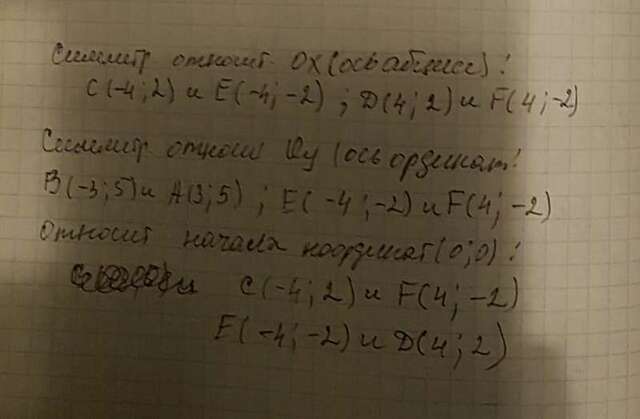 Симметр относит OX (ось абсцисс):
C(-4;2) и E(-4;-2); D(4;2) и F(4;-2)
Симметр относи Oy (ось ординат:
B(-3;5) и A(3;5); E(-4;-2) и F(4;-2)
Относит начала координат (0;0):
и C(-4;2) и F(4;-2)
E(-4;-2) и D(4;2)